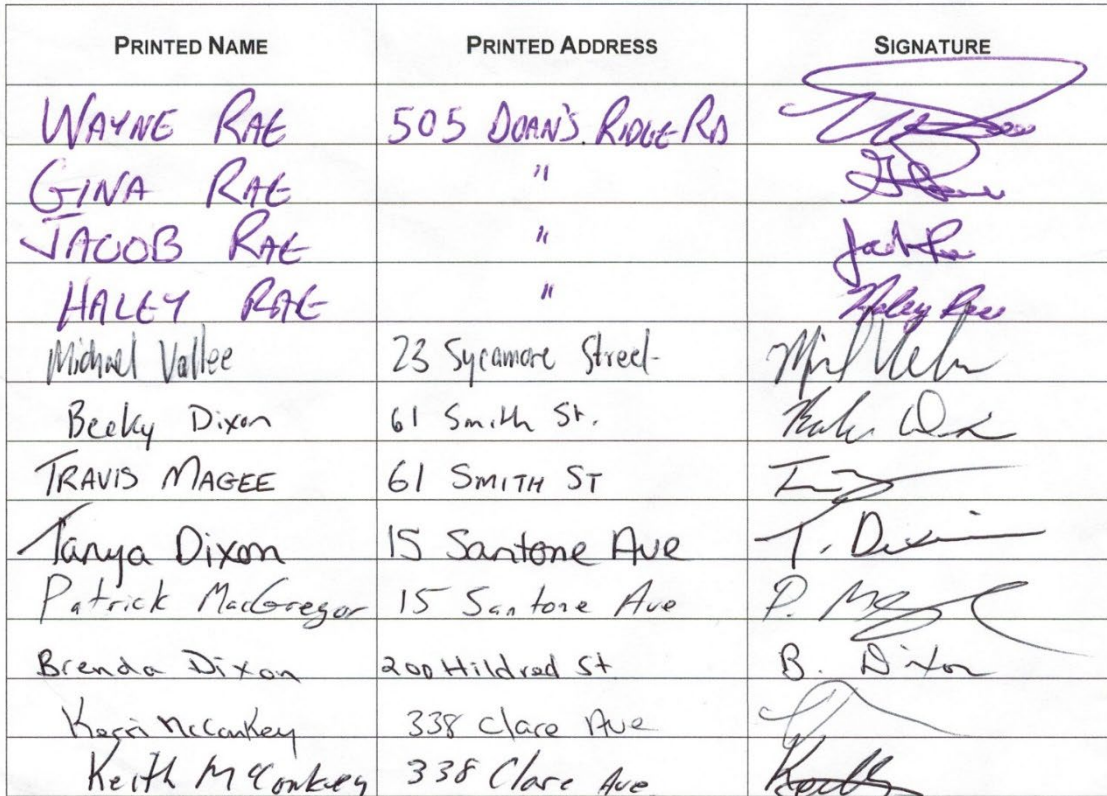 PRINTED NAME PRINTED ADDRESS SIGNATURE
WAYNE RAE 505 DOAN'S RIDGE RD
GINA RAE "
JACOB RAE "
HALEY RAE " Haley Rae
Michael Vallee 23 Sycamore Street
Becky Dixon 61 Smith St.
TRAVIS MAGEE 61 SMITH ST
Tanya Dixon 15 Santone Ave T. Dixon
Patrick MacGregor 15 Santone Ave
Brenda Dixon 200 Hildred St. B. Dixon
Kerri McConkey 338 Clare Ave
Keith McConkey 338 Clare Ave.